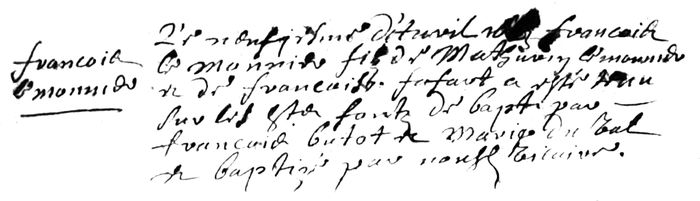 francois
lemonnier
Le neufiesme d'avril françois
le monnier fils de Mathurin lemonnier
et de francoise fusfart a esté tenu
sur les sts fontz de bapt par
francois butot et Marie du Val
et baptizé par nous vicaire.